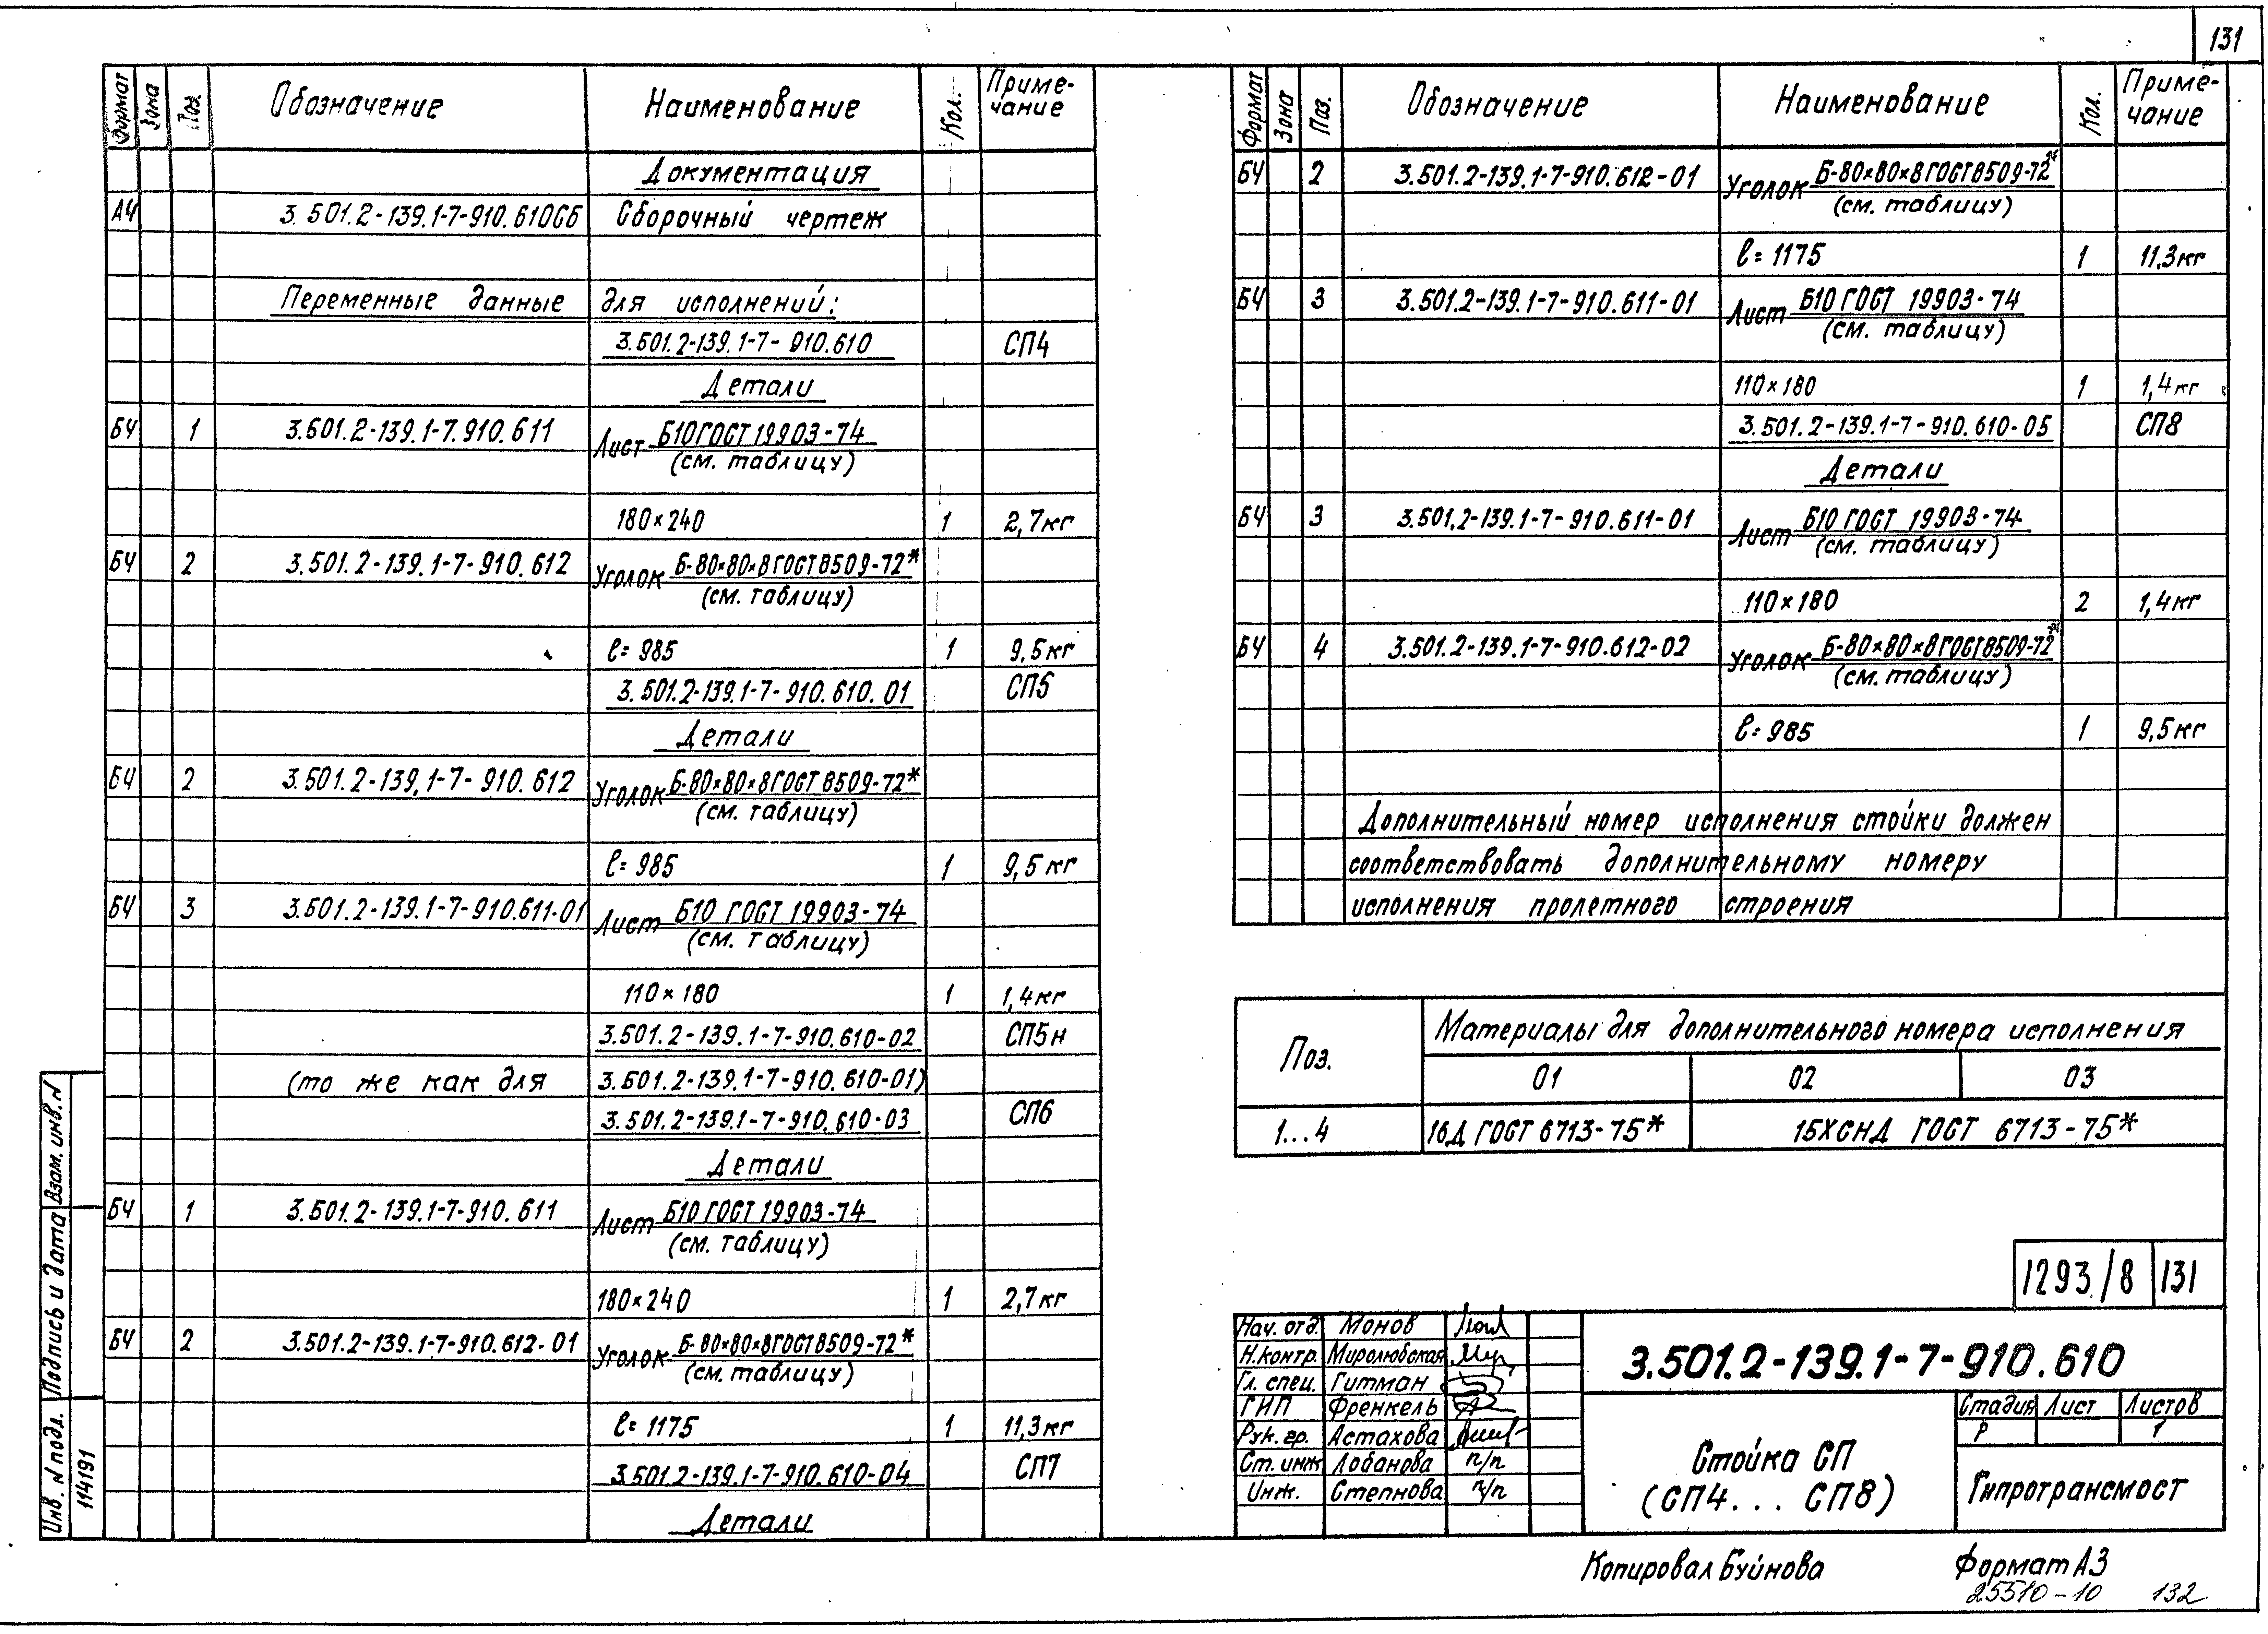 131
Формат Зона Поз. Обозначение Наименование Кол. Приме-
чание
Документация
А4 3.501.2-139.1-7-910.610СБ Сборочный чертеж
Переменные данные для исполнений:
3.501.2-139.1-7-910.610 СП4
Детали
БЧ 1 3.501.2-139.1-7.910.611 Лист Б10 ГОСТ 19903-74
(см. таблицу)
180×240 1 2,7кг
БЧ 2 3.501.2-139.1-7-910.612 Уголок Б-80×80×8 ГОСТ 8509-72*
(см. таблицу)
ℓ=985 1 9,5кг
3.501.2-139.1-7-910.610.01 СП5
Детали
БЧ 2 3.501.2-139,1-7-910.612 Уголок Б-80×80×8 ГОСТ 8509-72*
(см. таблицу)
ℓ=985 1 9,5кг
БЧ 3 3.501.2-139.1-7-910.611-01 Лист Б10 ГОСТ 19903-74
(см. таблицу)
110×180 1 1,4кг
3.501.2-139.1-7-910.610-02 СП5н
(то же как для 3.501.2-139.1-7-910.610-01)
3.501.2-139.1-7-910.610-03 СП6
Детали
БЧ 1 3.501.2-139.1-7-910.611 Лист Б10 ГОСТ 19903-74
(см. таблицу)
180×240 1 2,7кг
БЧ 2 3.501.2-139.1-7-910.612-01 Уголок Б-80×80×8 ГОСТ 8509-72*
(см. таблицу)
ℓ=1175 1 11,3кг
3.501.2-139.1-7-910.610-04 СП7
Детали
Формат Зона Поз. Обозначение Наименование Кол. Приме-
чание
БЧ 2 3.501.2-139.1-7-910.612-01 Уголок Б-80×80×8 ГОСТ 8509-72*
(см. таблицу)
ℓ=1175 1 11,3кг
БЧ 3 3.501.2-139.1-7-910.611-01 Лист Б10 ГОСТ 19903-74
(см. таблицу)
110×180 1 1,4кг
3.501.2-139.1-7-910.610-05 СП8
Детали
БЧ 3 3.501,2-139.1-7-910.611-01 Лист Б10 ГОСТ 19903-74
(см. таблицу)
110×180 2 1,4кг
БЧ 4 3.501.2-139.1-7-910.612-02 Уголок Б-80×80×8 ГОСТ 8509-72*
(см. таблицу)
ℓ=985 1 9,5кг
Дополнительный номер исполнения стойки должен
соответствовать дополнительному номеру
исполнения пролетного строения
Поз. Материалы для дополнительного номера исполнения
01 02 03
1...4 16Д ГОСТ 6713-75* 15ХСНД ГОСТ 6713-75*
1293/8 131
Нач. отд. Монов
Н.контр. Миролюбская
Гл. спец. Гитман
ГИП Френкель
Рук. гр. Астахова
Ст. инж Лобанова п/п
Инж. Степнова п/п
3.501.2-139.1-7-910.610
Стойка СП
(СП4... СП8)
Стадия Лист Листов
Р 1
Гипротрансмост
Инв. N подл. Подпись и дата Взам. инв. N
114191
Копировал Буйнова Формат А3
25510-10 132